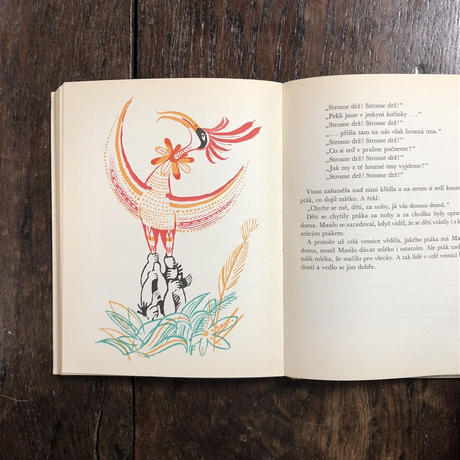 „Strome drž! Strome drž!"
„Pekli jsme v jeskyni kořínky . . ."
„Strome drž! Strome drž!"
„. . . přišla tam na nás však hrozná tma."
„Strome drž! Strome drž!"
„Co si teď v pralese počneme?"
„Strome drž! Strome drž!"
„Jak my z té hrozné tmy vyjdeme?"
„Strome drž! Strome drž!"
Vtom zašuměla nad nimi křídla a na strom si sedl kouz
pták, co dojil mléko. A řekl:
„Chyťte se mě, děti, za nohy, já vás donesu domů."
Děti se chytily ptáka za nohy a za chvilku byly opra
doma. Masilo se zaradoval, když viděl, že se děti vrátily i s k
zelným ptákem.
A protože už celá vesnice věděla, jakého ptáka má Ma
doma, musil Masilo dávat mléko i ostatním. Ale pták nad
tolik mléka, že stačilo pro všecky. A tak lidé v celé vesnici b
tloustli a vedlo se jim dobře.